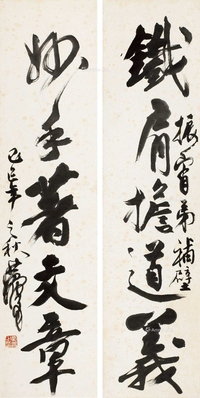 鐵肩擔道義
振霄弟補壁
妙手著文章
己巳年之秋